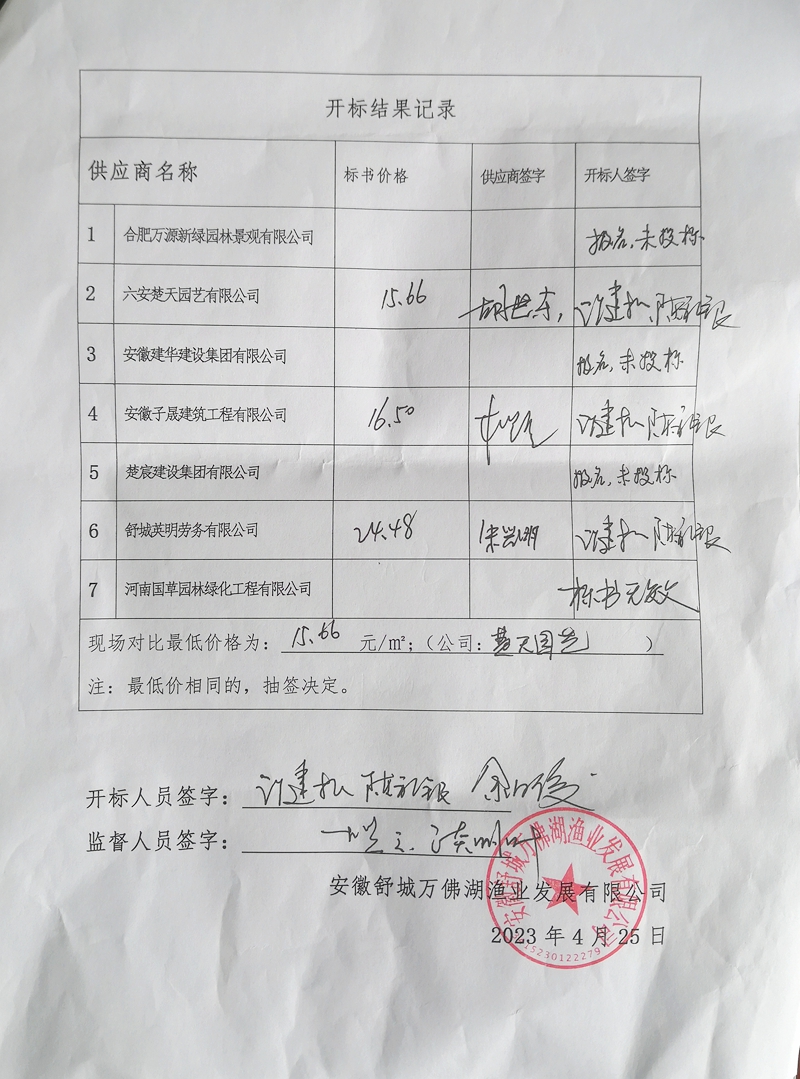 开标结果记录
供应商名称 标书价格 供应商签字 开标人签字
1 合肥万源新绿园林景观有限公司 报名,未投标
2 六安楚天园艺有限公司 15.66
3 安徽建华建设集团有限公司 报名,未投标
4 安徽子晟建筑工程有限公司 16.50
5 楚宸建设集团有限公司 报名,未投标
6 舒城英明劳务有限公司 24.48
7 河南国草园林绿化工程有限公司 标书无效
现场对比最低价格为：15.66 元/m²；（公司：楚天园艺 ）
注：最低价相同的，抽签决定。
开标人员签字：
监督人员签字：
安徽舒城万佛湖渔业发展有限公司
2023 年 4 月 25 日
安徽舒城万佛湖渔业发展有限公司